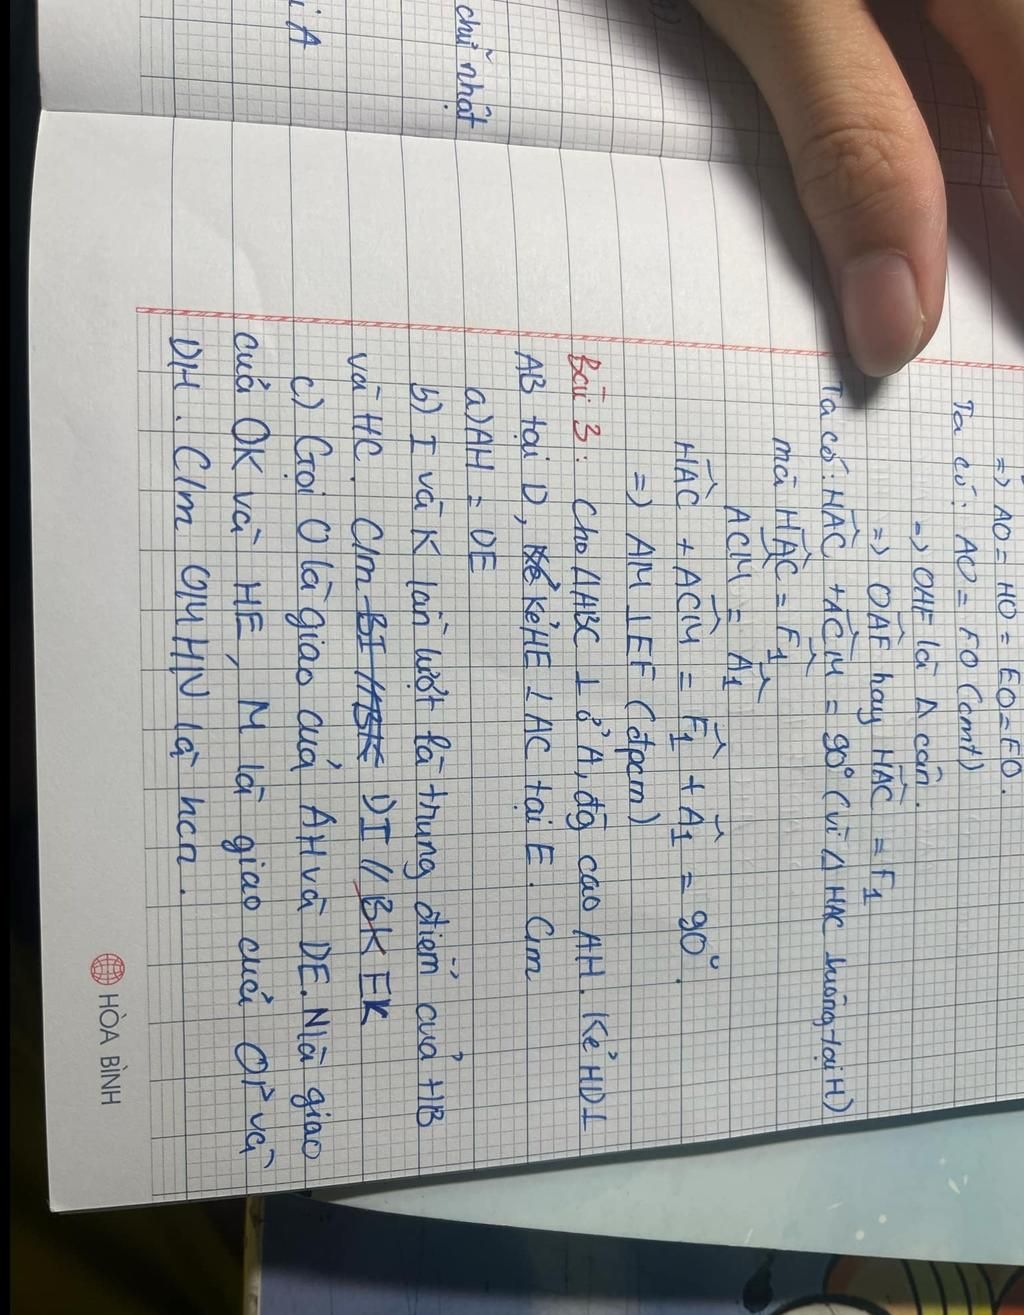 chữ nhật
i A
=) AO = HO = EO = FO.
Ta có: AO = FO (cmt)
=) OAF là Δ cân.
=) OAF hay HAC = F1
Ta có: HAC + ACM = 90° (vì Δ HAC vuông tại H)
mà HAC = F1
ACM = A1
HAC + ACM = F1 + A1 = 90°.
=) AM ⊥ EF (đpcm)
Bài 3: Cho ΔABC ⊥ ở A, đg cao AH. Kẻ HD⊥
AB tại D, Kẻ HE ⊥ AC tại E. Cm
a) AH = DE
b) I và K lần lượt là trung điểm của HB
và HC. C/m DI // EK
c) Gọi O là giao của AH và DE. N là giao
của OK và HE, M là giao của OI và
DH. C/m OMHN là hcn.
HÒA BÌNH